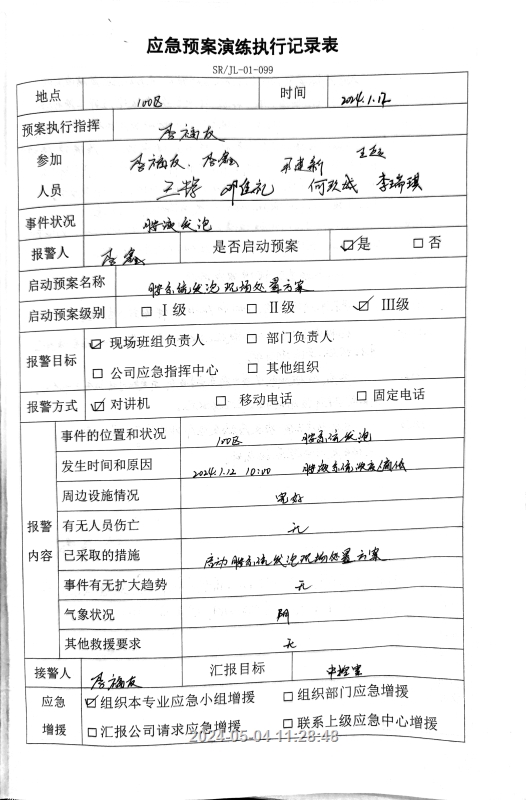 应急预案演练执行记录表
SR/JL-01-099
地点 100区 时间 2024.1.12
预案执行指挥 李福友
参加人员 李福友、李鑫 王超
何玖成 李瑞琪
事件状况 胺液发泡
报警人 李鑫 是否启动预案 ☑是 □否
启动预案名称 胺系统发泡现场处置方案
启动预案级别 □ Ⅰ级 □ Ⅱ级 ☑ Ⅲ级
报警目标 ☑ 现场班组负责人 □ 部门负责人
□ 公司应急指挥中心 □ 其他组织
报警方式 ☑ 对讲机 □ 移动电话 □ 固定电话
报警内容
事件的位置和状况 100区 胺系统发泡
发生时间和原因 2024.1.12 10:00 胺液系统
周边设施情况 完好
有无人员伤亡 无
已采取的措施 启动胺系统发泡现场处置方案
事件有无扩大趋势 无
气象状况 阴
其他救援要求 无
接警人 李福友 汇报目标 中控室
应急增援 ☑组织本专业应急小组增援 □组织部门应急增援
□汇报公司请求应急增援 □联系上级应急中心增援
2024-05-04 11:28:48